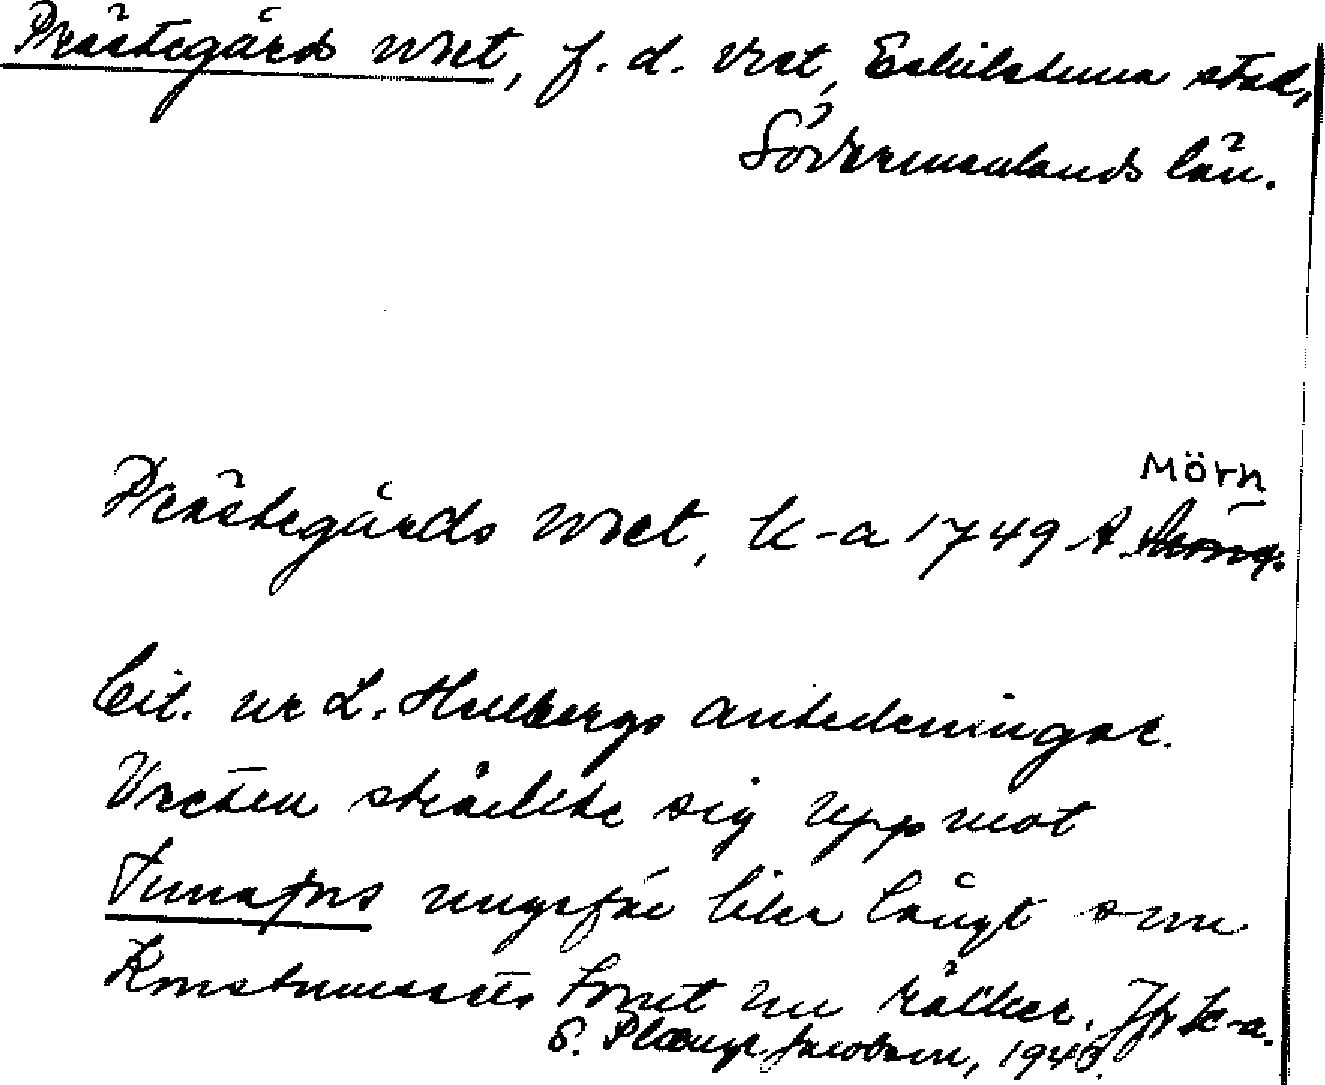 Prästegårds wret, f. d. vret, Eskilstuna stad,
Södermanlands län.
Mörn
Prästegårds wret, k-a 1749 A
Cit. ur L. Hellbergs anteckningar.
Vreten sträckte sig upp mot
Tunafors ungefär lika långt som
Konstmuseets tomt nu räcker. Jfr k-a.
S. Plœnge Jacobson, 1945.